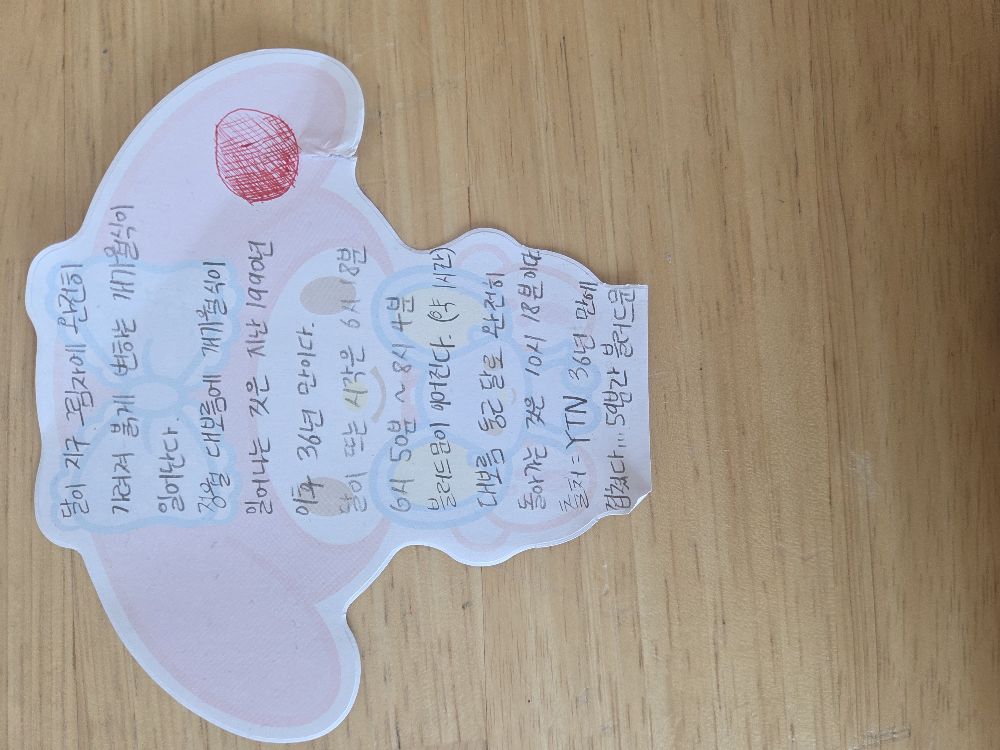 달이 지구 그림자에 완전히
가려져 붉게 변하는 개기월식이
일어난다.
정월 대보름에 개기월식이
일어나는 것은 지난 1990년
이후 36년 만이다.
달이 뜨는 시각은 6시 18분
6시 50분 ~ 8시 4분
블러드문이 이어진다. (약 1시간)
대보름 둥근 달로 완전히
돌아가는 것은 10시 18분이다
출처 = YTN 36년 만에
겹쳤다... 59분간 블러드문